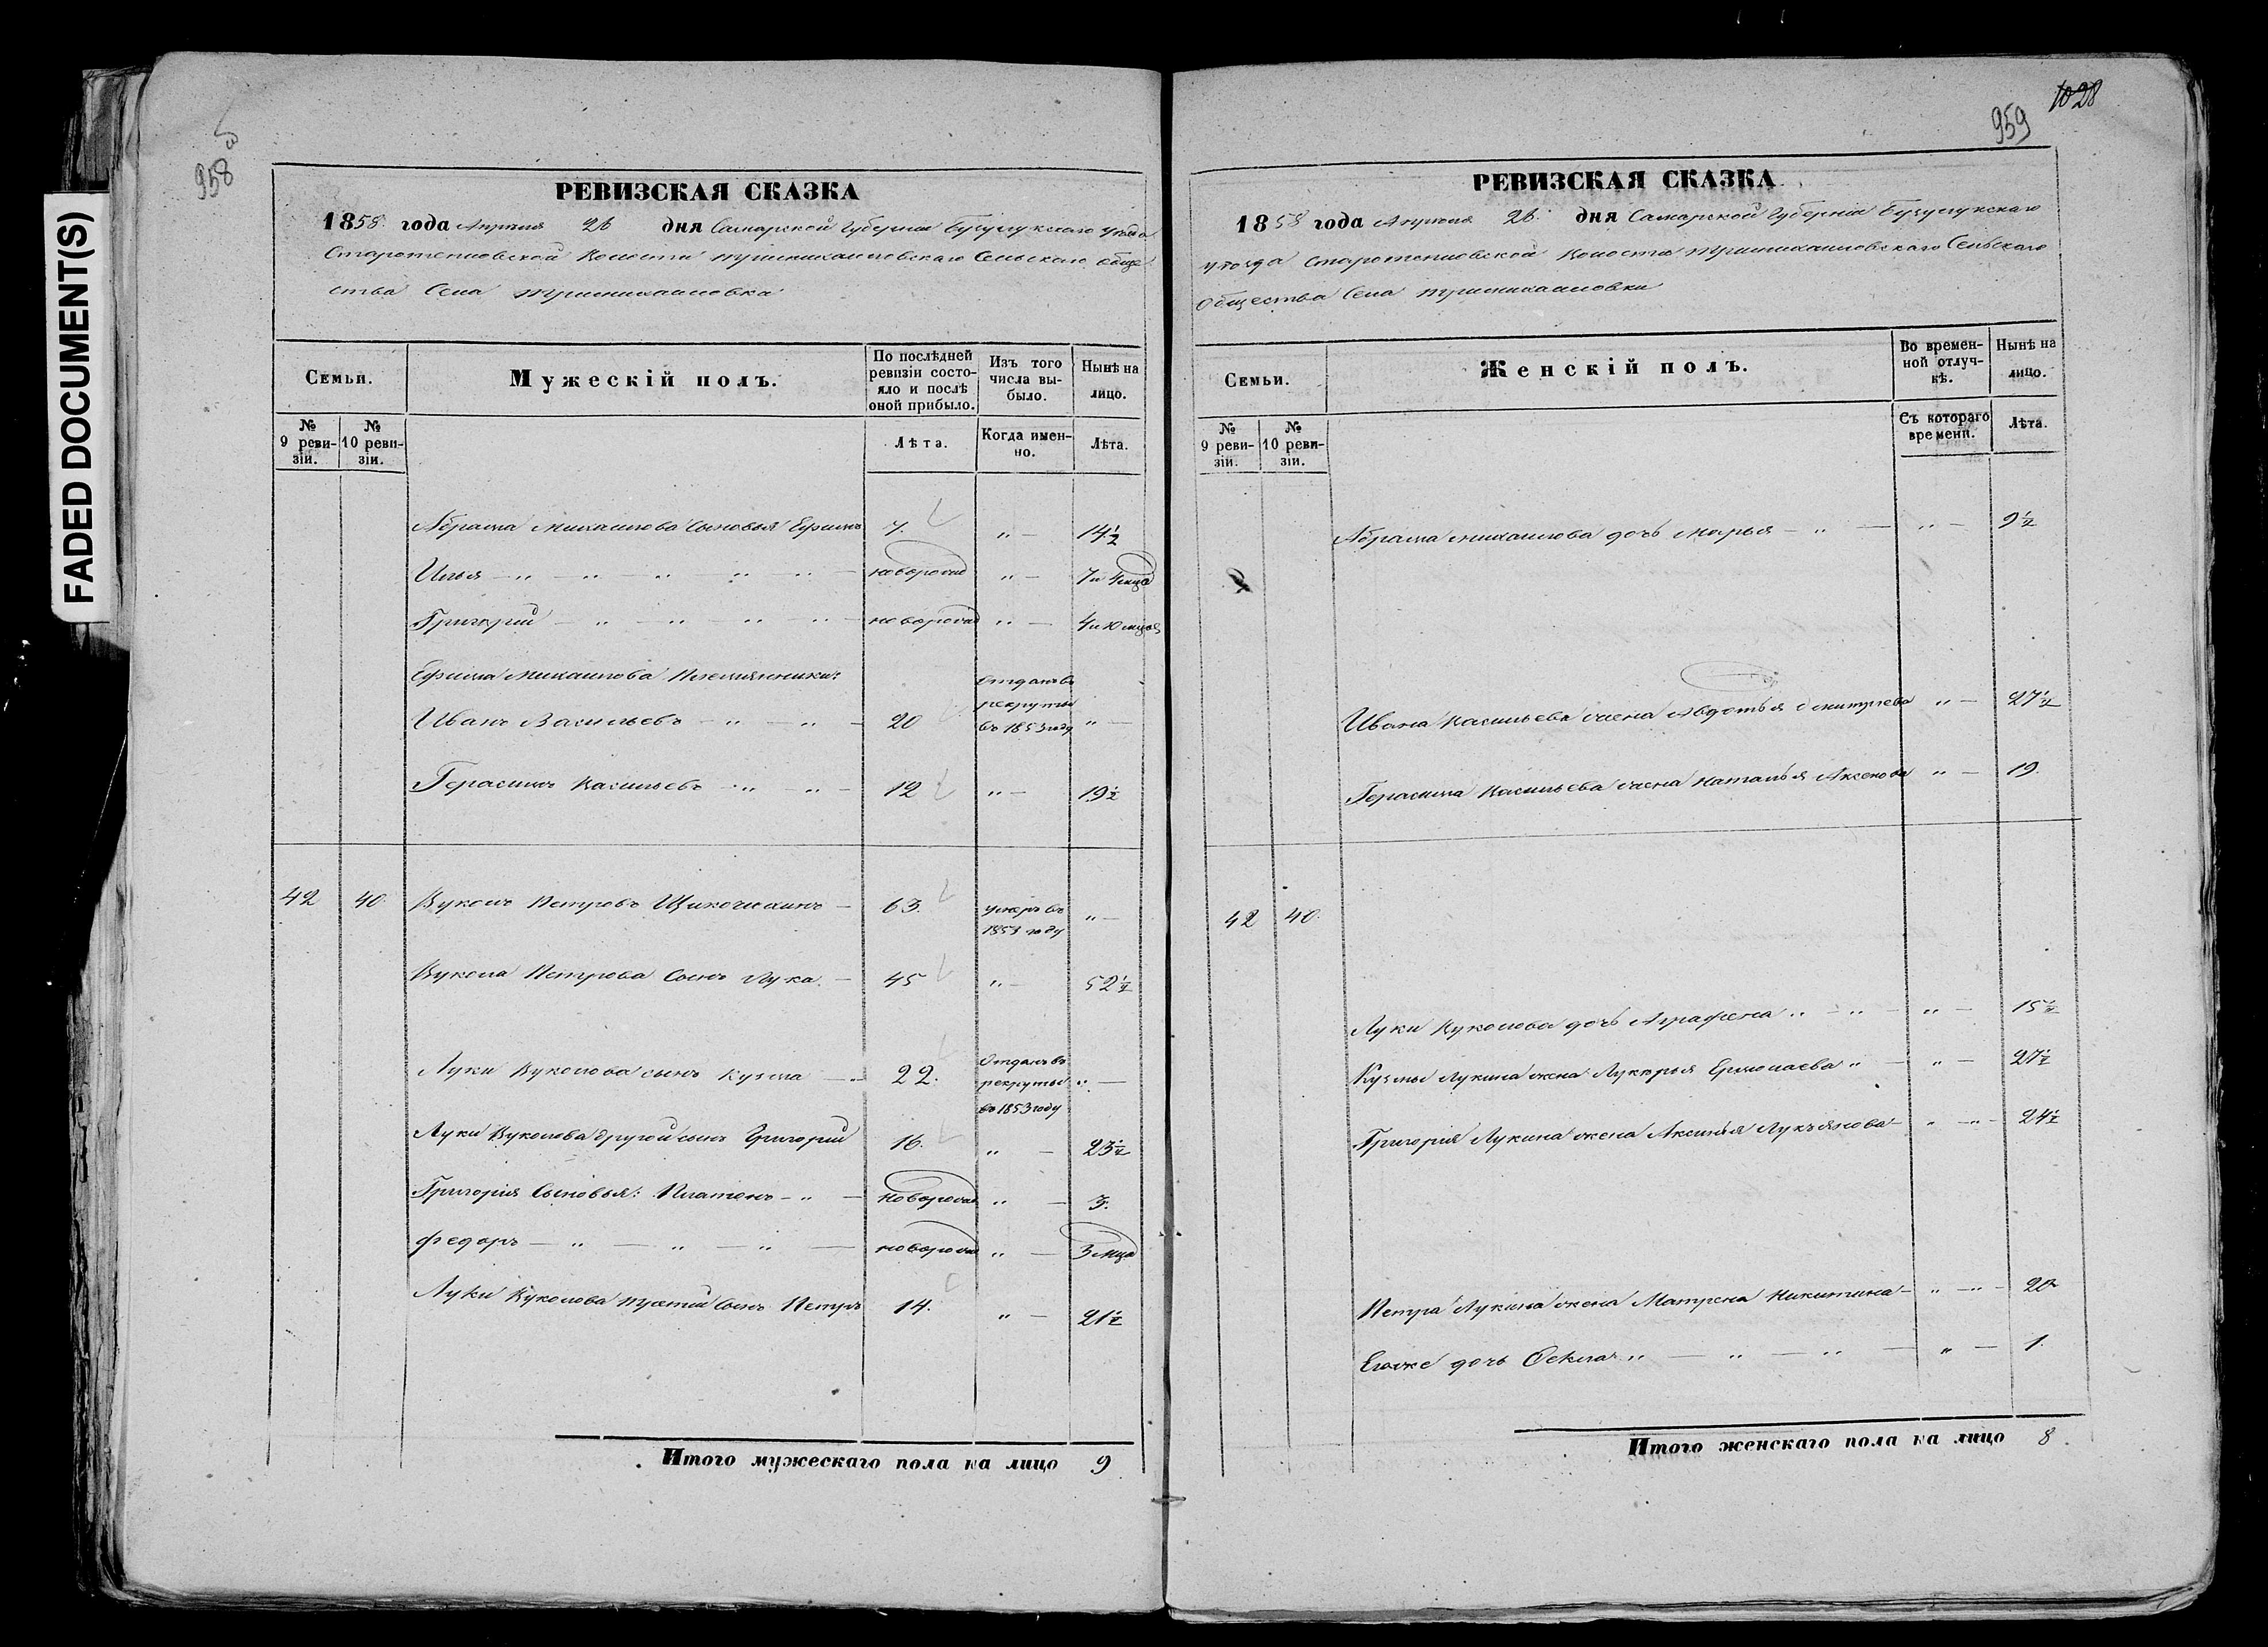 FADED DOCUMENT(S)
958
РЕВИЗСКАЯ СКАЗКА
1858 года Апреля 26 дня Самарской Губернии Бузулукскаго уезда
Волости Сельскаго обще
ства Села
Семьи.
Мужескій полъ.
По послѣдней ревизіи состояло и послѣ оной прибыло.
Изъ того числа выбыло.
Нынѣ на лицо.
№ 9 ревизіи.
№ 10 ревизіи.
Лѣта.
Когда именно.
Лѣта.
Абрама Михаилова Сыновья Ефимъ 7. " — 14½
Илья — " — " — " " " — новорожд " — 7 и 4 мца
Григорий — " — " — " — " — новорожд " — 4 и 10 мцов
Ефима Михаилова Племянники:
Иванъ Васильевъ — " — " — 20 Отданъ въ рекруты въ 1853 году " —
Герасимъ Васильевъ — " — " — 12 " — 19½
42 40. Вуколъ Петровъ — 63. умеръ въ 1853 году " —
Вукола Петрова Сынъ Лука. — 45 " — 52½
Луки Вуколова сынъ Кузма — " 22. Отданъ въ рекруты въ 1853 году " —
Луки Вуколова другой сынъ Григорий 16. " — 23½
Григория Сыновья: Платонъ — " — новорожд " — 3.
Федоръ — " — " — " — новорожд " — 3 мца
Луки Вуколова третий Сынъ Петръ 14. " — 21½
Итого мужескаго пола на лицо 9
1028
959
РЕВИЗСКАЯ СКАЗКА
1858 года Апреля 26 дня Самарской Губернии Бузулукскаго
уезда Волости Сельскаго
Общества Села
Семьи.
Женскій полъ.
Во временной отлучкѣ.
Нынѣ на лицо.
№ 9 ревизіи.
№ 10 ревизіи.
Съ котораго времени.
Лѣта.
Абрама Михаилова дочь Марья — " — " — 9½
Ивана Васильева жена Авдотья Дмитриева " — 27½
Герасима Васильева жена Наталья Аксенова " — 19.
42 40.
Луки Вуколова дочь Аграфена " — " — " — 15½
Кузмы Лукина жена Лукерья Ермолаева " — " — 27½
Григория Лукина жена Аксинья Лукьянова — " — " — 24½
Петра Лукина жена Матрена Никитина — " — " — 20
Ея же дочь " — " — " — " — 1.
Итого женскаго пола на лицо 8.